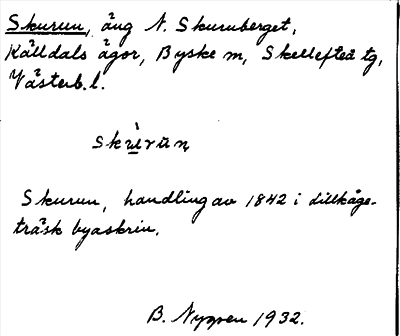 Skurun, äng N. Skurunberget,
Källdals ägor, Byske m, Skellefteå tg,
Västerb. l.
skùrun
Skurun, handling av 1842 i Lillkåge-
träsk byaskrin.
B. Nyppen 1932.